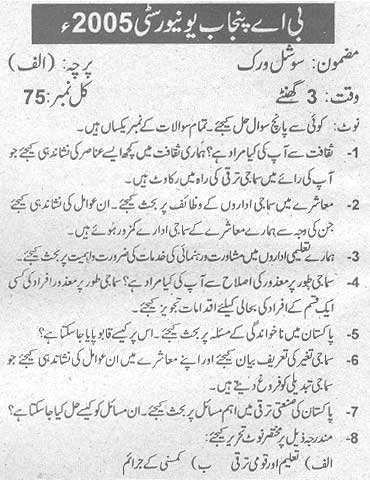 بی اے پنجاب یونیورسٹی 2005ء
مضمون: سوشل ورک پرچہ: (الف)
وقت: 3 گھنٹے کل نمبر: 75
نوٹ: کوئی سے پانچ سوال حل کیجئے۔ تمام سوالات کے نمبر یکساں ہیں۔
1- ثقافت سے آپ کی کیا مراد ہے؟ ہماری ثقافت میں کچھ ایسے عناصر کی نشاندہی کیجئے جو
آپ کی رائے میں سماجی ترقی کی راہ میں رکاوٹ ہیں۔
2- معاشرے میں سماجی اداروں کے وظائف پر بحث کیجئے۔ ان عوامل کی نشاندہی کیجئے
جن کی وجہ سے ہمارے معاشرے کے سماجی ادارے کمزور ہوئے ہیں۔
3- ہمارے تعلیمی اداروں میں مشاورت و رہنمائی کی خدمات کی ضرورت و اہمیت پر بحث کیجئے۔
4- سماجی طور پر معذور کی اصلاح سے آپ کی کیا مراد ہے؟ سماجی طور پر معذور افراد کی کسی
ایک قسم کے افراد کی بحالی کیلئے اقدامات تجویز کیجئے۔
5- پاکستان میں ناخواندگی کے مسئلہ پر بحث کیجئے۔ اس پر کیسے قابو پایا جا سکتا ہے؟
6- سماجی تغیر کی تعریف بیان کیجئے اور اپنے معاشرے میں ان عوامل کی نشاندہی کیجئے جو
سماجی تبدیلی کو فروغ دیتے ہیں۔
7- پاکستان کی صنعتی ترقی میں اہم مسائل پر بحث کیجئے۔ ان مسائل کو کیسے حل کیا جا سکتا ہے؟
8- مندرجہ ذیل پر مختصر نوٹ تحریر کیجئے:
الف) تعلیم اور قومی ترقی ب) کمسنی کے جرائم